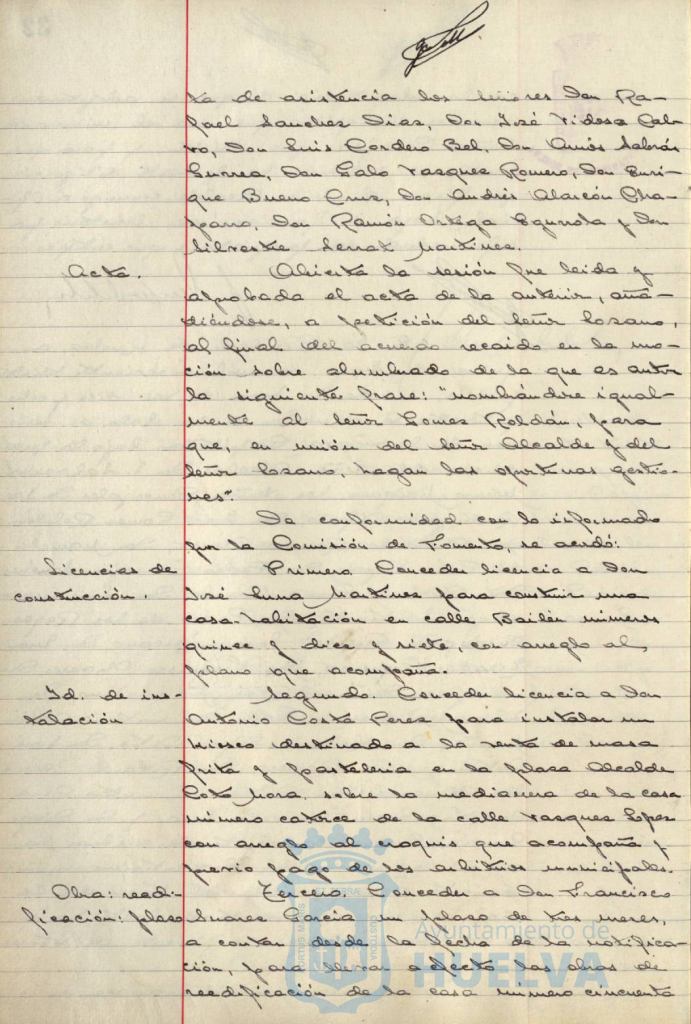 ta de asistencia los señores Don Ra-
fael Sanchez Diaz, Don José Vidosa Cal-
vo, Don Luis Cordero Bel, Don Amós Sabrás
Gurrea, Don Galo Vazquez Romero, Don Enri-
que Bueno Cruz, Don Andrés Alarcón Cha-
parro, Don Ramón Ortega Egurrola y Don
Silvestre Serrat Martinez.
Acta.
Abierta la sesión fue leida y
aprobada el acta de la anterior, aña-
diéndose, a petición del Señor Lozano,
al final del acuerdo recaido en la mo-
ción sobre alumbrado de la que es autor
la siguiente frase: "nombrándose igual-
mente al Señor Gomez Roldán, para
que, en unión del Señor Alcalde y del
Señor Lozano, hagan las oportunas gestio-
nes".
De conformidad con lo informado
por la Comisión de Fomento, se acordó:
Licencias de
construcción.
Primero. Conceder licencia a Don
José Luna Martinez para construir una
casa-habitación en calle Bailén números
quince y diez y siete, con arreglo al
plano que acompaña.
Id. de ins-
talación
Segundo. Conceder licencia a Don
Antonio Costa Perez para instalar un
kiosco destinado a la venta de masa
frita y pasteleria en la plaza Alcalde
Coto Mora, sobre la medianera de la casa
número catorce de la calle Vazquez Lopez
con arreglo al croquis que acompaña y
previo pago de los arbitrios municipales.
Obra: reedi-
ficación: plazo
Tercero. Conceder a Don Francisco
Suarez Garcia un plazo de tres meses,
a contar desde la fecha de la notifica-
ción, para llevar a efecto las obras de
reedificación de la casa número cincuenta
Ayuntamiento de
HUELVA